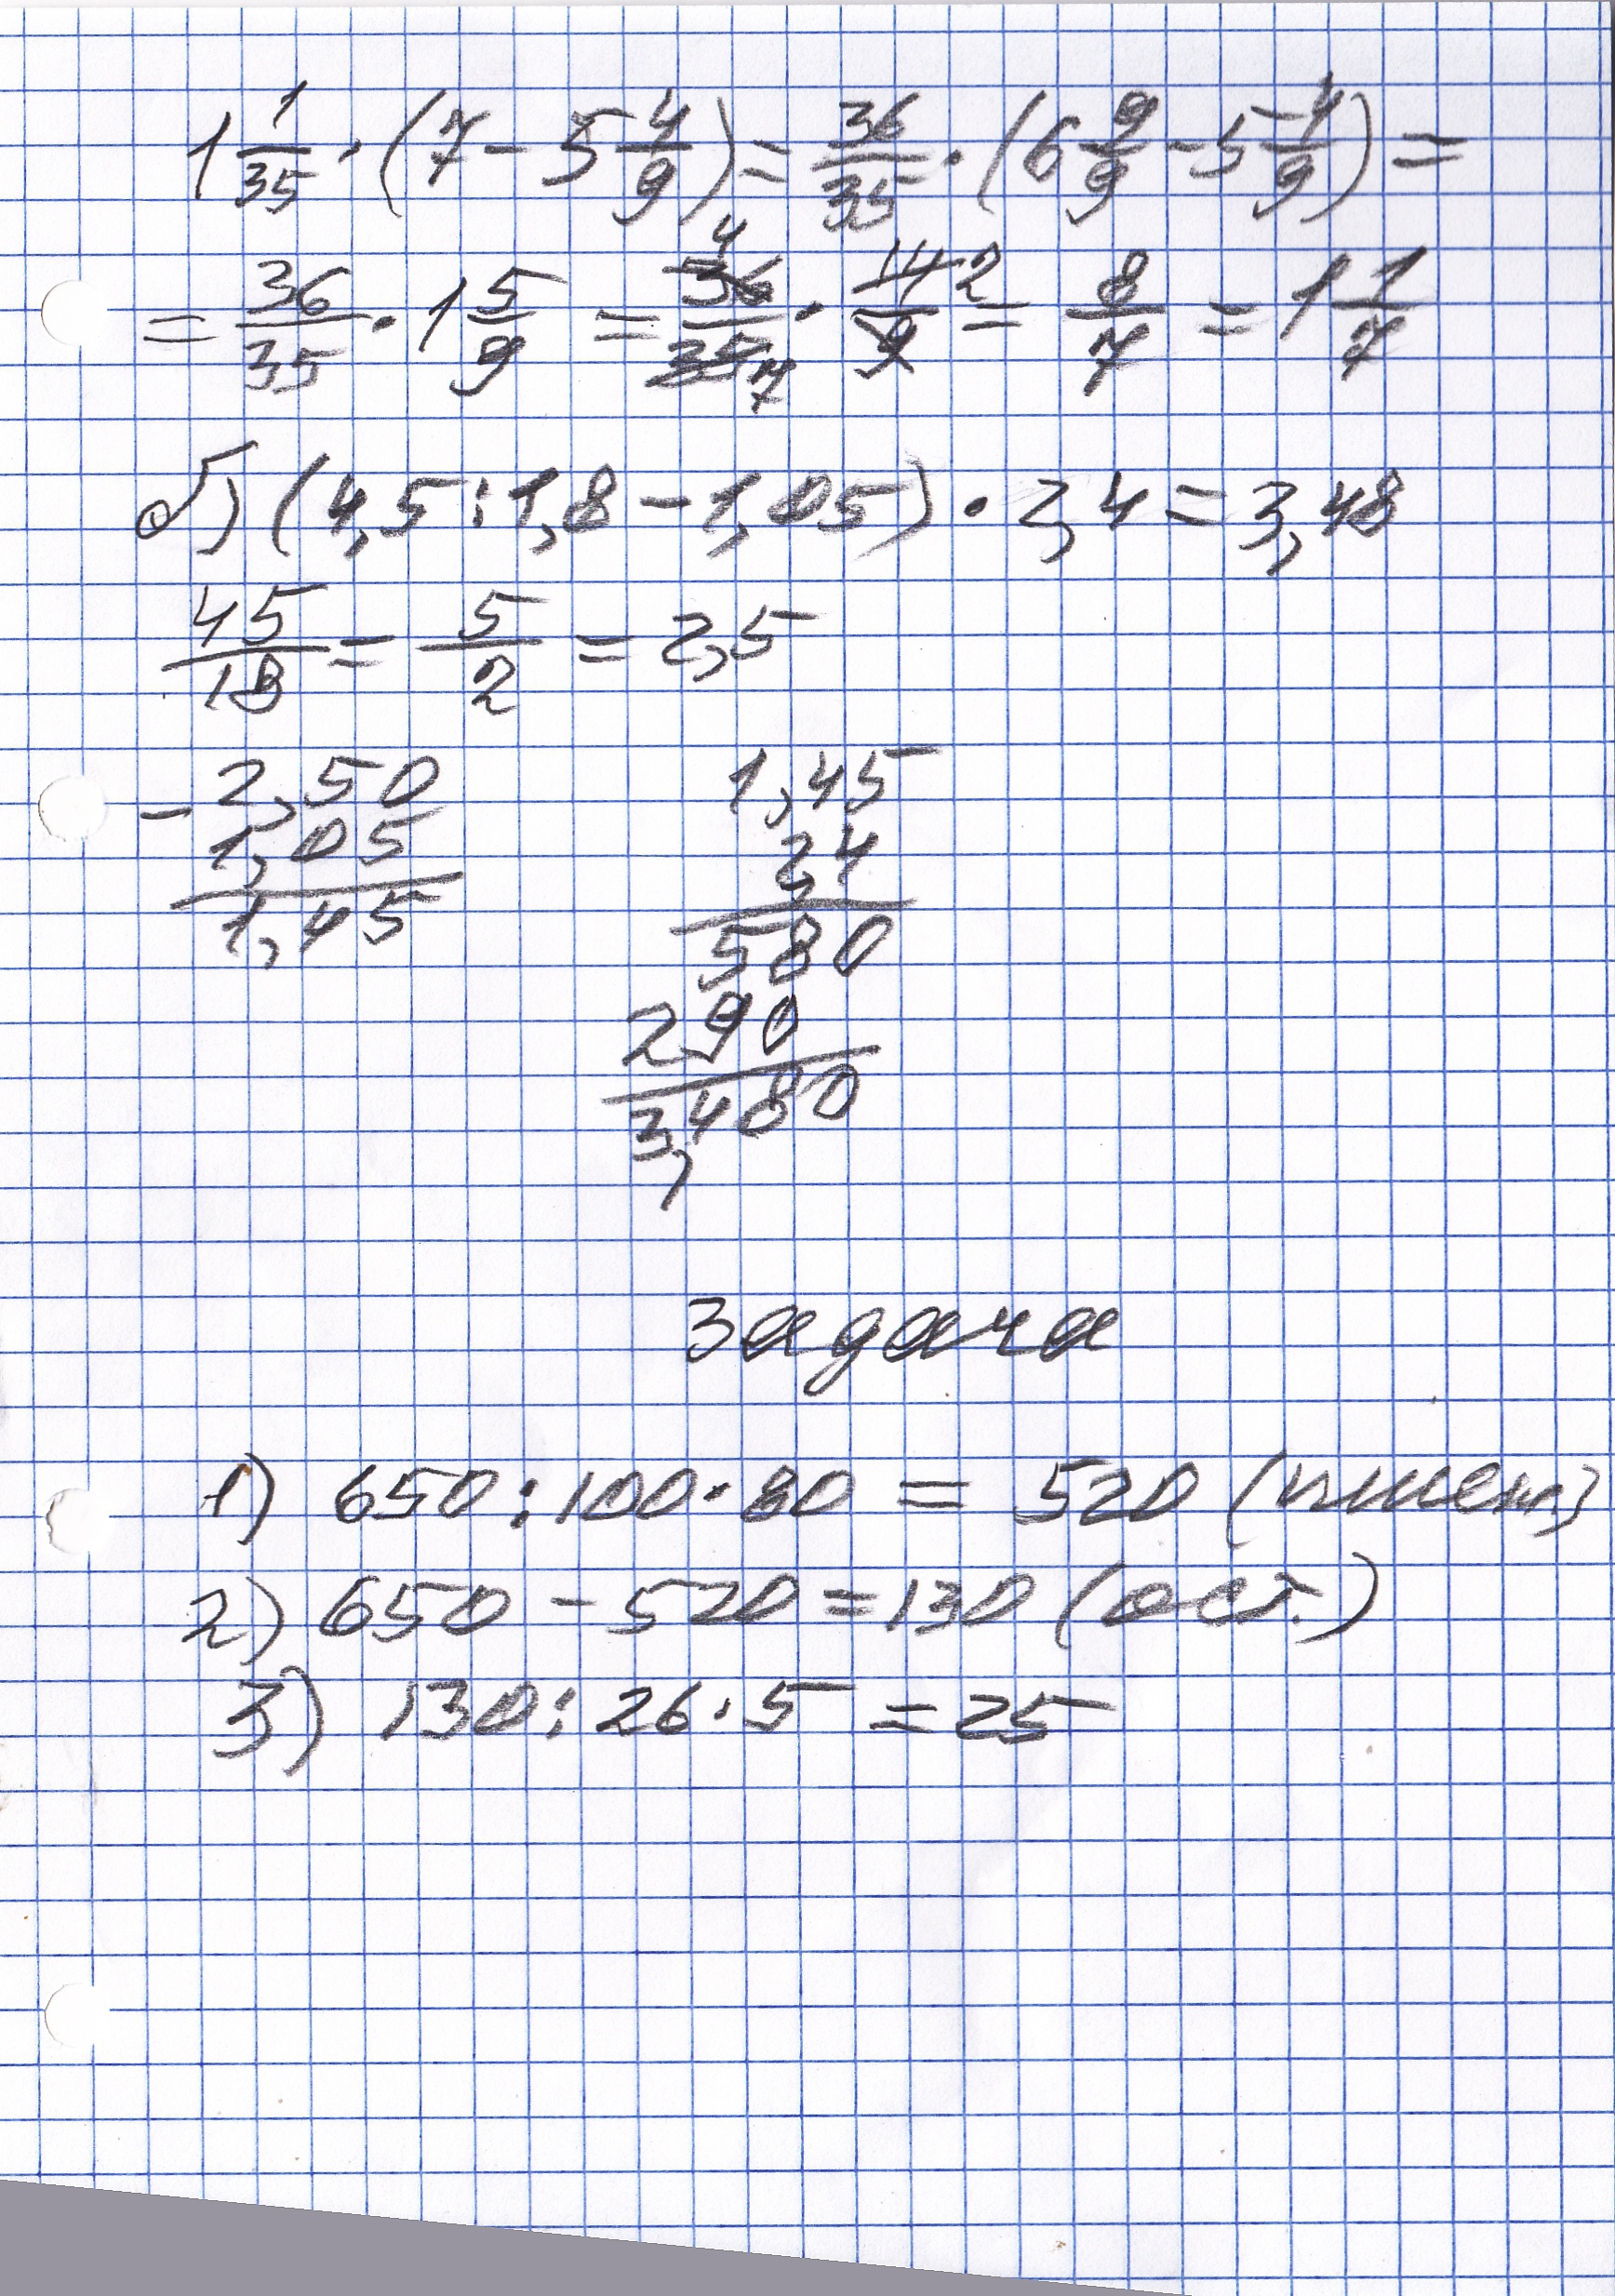 1 1/35 · (7 - 5 4/9) = 36/35 · (6 9/9 - 5 4/9) =
= 36/35 · 1 5/9 = 36/35 · 14/9 = 8/7 = 1 1/7
4 7 2
б) (4,5 : 1,8 - 1,05) · 2,4 = 3,48
45/18 = 5/2 = 2,5
- 2,50
1,05
1,45
1,45
2,4
580
290
3,480
Задача
1) 650 : 100 · 80 = 520 (пшен.)
2) 650 - 520 = 130 (ост.)
3) 130 : 26 · 5 = 25